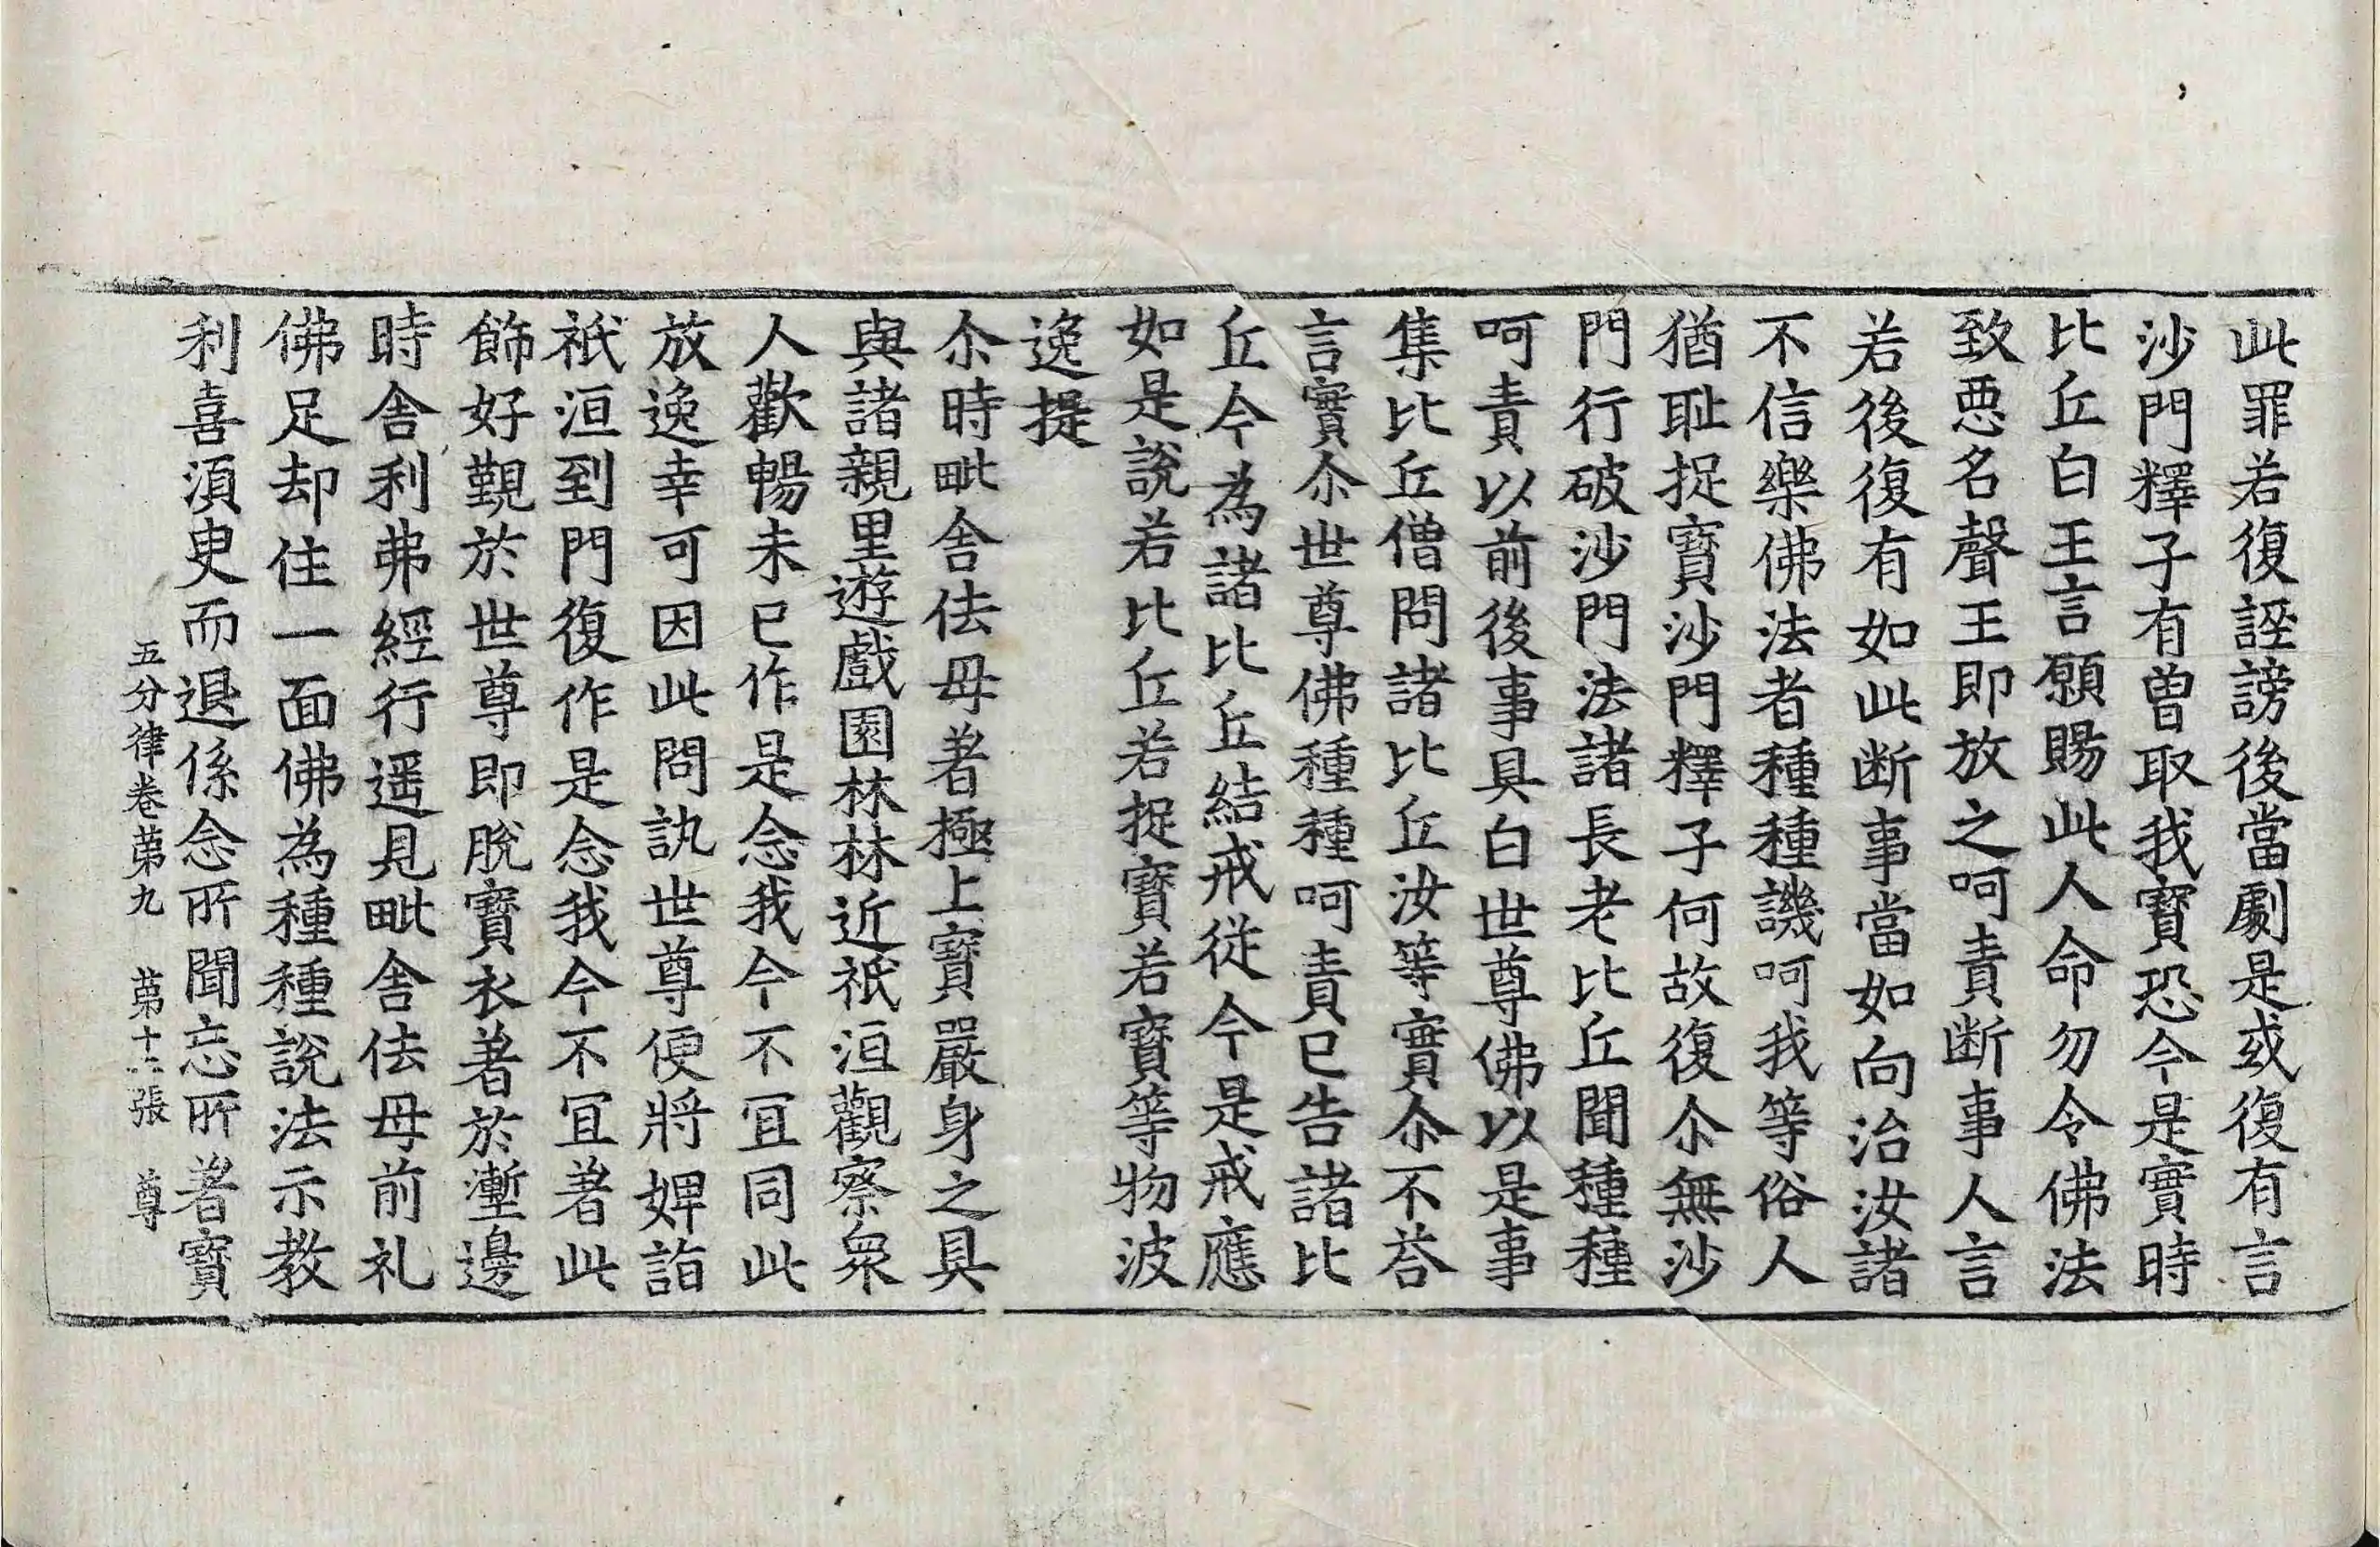 此罪若復誣謗後當劇是或復有言
沙門釋子有曾取我寶恐今是實時
比丘白王言願賜此人命勿令佛法
致惡名聲王即放之呵責断事人言
若後復有如此断事當如向治汝諸
不信樂佛法者種種譏呵我等俗人
猶耻捉寶沙門釋子何故復尒無沙
門行破沙門法諸長老比丘聞種種
呵責以前後事具白世尊佛以是事
集比丘僧問諸比丘汝等實尒不荅
言實尒世尊佛種種呵責已告諸比
丘今為諸比丘結戒從今是戒應
如是說若比丘若捉寶若寶等物波
逸提
尒時毗舍佉母著極上寶嚴身之具
與諸親里遊戲園林林近祇洹觀察衆
人歡暢未已作是念我今不冝同此
放逸幸可因此問訊世尊便將婢詣
祇洹到門復作是念我今不冝著此
飾好覲於世尊即脫寶衣著於壍邊
時舍利弗經行遥見毗舍佉母前礼
佛足却住一面佛為種種說法示教
利喜湏臾而退係念所聞忘所著寶
五分律卷苐九 苐十二張 尊